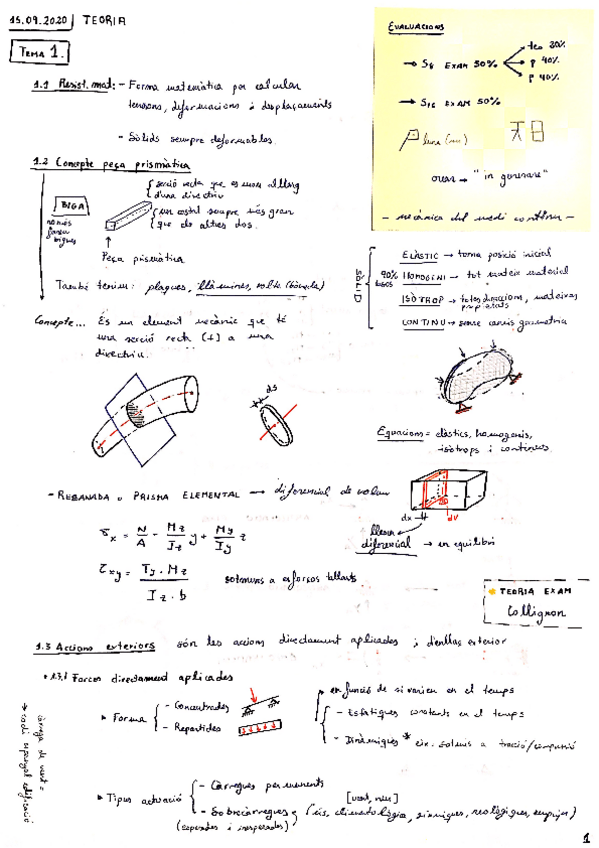 15.09.2020 TEORIA
TEMA 1.
1.1 Resist. mat: - Forma matemàtica per calcular
tensions, deformacions i desplaçaments
- Sòlids sempre deformables.
1.2 Concepte peça prismàtica
BIGA
només
bigues
secció recta que es mou al llarg
d'una directriu
un costat sempre més gran
que els altres dos.
Peça prismàtica
També tenim: plaques, làmines, volta (bóveda)
Concepte... És un element mecànic que té
una secció recta (⊥) a una
directriu.
ds
- REBANADA o PRISMA ELEMENTAL → diferencial de volum
σx = N/A - Mz/Iz y + My/Iy z
τxy = Ty · Mz / Iz · b sotmesos a esforços tallants
EVALUACIONS
→ S8 EXAM 50% teo 20%
P 40%
P 40%
→ S16 EXAM 50%
→ "in generare"
- mecànica del medi continu -
SÒLID
90%
ELÀSTIC → torna posició inicial
HOMOGENI → tot mateix material
ISÒTROP → totes direccions, mateixes
propietats
CONTINU → sense canvis geometria
Equacions = elàstics, homogenis,
isòtrops i continus.
dx dV
llesca
diferencial → en equilibri
TEORIA EXAM
Collignon
1.3 Accions exteriors són les accions directament aplicades i d'enllaç exterior
1.3.1 Forces directament aplicades
Forma - Concentrades
- Repartides
en funció de si varien en el temps
- Estàtiques constants en el temps
- Dinàmiques * ex. sotmès a tracció/compressió
càrrega de vent =
Tipus actuació - Càrregues permanents
[vent, neu]
- Sobrecàrregues (ús, climatològia, sísmiques, reològiques, empujes)
(esperades i inesperades)
1